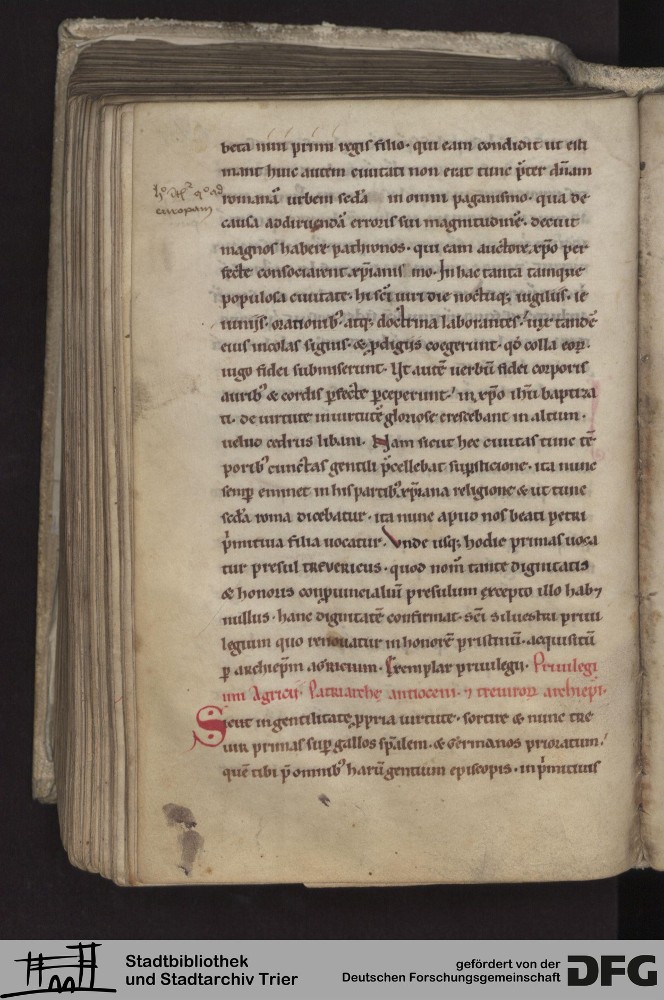 beta nini primi regis filio· qui eam condidit ut esti
mant huic autem ciuitati non erat tunc p̄ter dn̄am
romanā urbem secd̄a in omni paganismo· qua de
europam
causa addiruendā erroris sui magnitudinē· decuit
magnos habere pathronos· qui eam auctore xp̄o per
fecte consociarent xp̄ianis īmo· In hac tanta tamque
populosa ciuitate· hi sc̄i uiri die noctuq; uigiliis· ie
iuniis· orationib; atq; doctrina laborantes· uix tandē
eius incolas signis· & ꝓdigiis coegerunt· qd̄ colla eoꝝ·
iugo fidei submiserunt· Ut autē uerbū fidei corporis
aurib; & cordis ꝑfecte ꝑceperunt· in xp̄o ih̄u baptiza
ti· de uirtute in uirtutē gloriose crescebant in altum·
uelud cedrus libani· Nam sicut hec ciuitas tunc tē
porib; cunctas gentili p̄cellebat suꝑsticione· ita nunc
semꝑ eminet in his partib; xp̄iana religione & ut tunc
secd̄a roma dicebatur· ita nunc apud nos beati petri
p̄mitiua filia uocatur· Unde usq; hodie primas uoca
tur presul treuericus· quod nom̄ tante dignitatis
& honoris conꝓuincialiū presulum excepto illo hab⁊
nullus· hanc dignitatē confirmat· sc̄i siluestri priui
legium quo renouatur in honorē pristinū· acquisitū
ꝑ archiep̄m agricium· Exemplar priuilegii· Priuilegi
um Agricii· Patriarche antioceni· ⁊ treuiroꝝ archiep̄i·
Sicut in gentilitate ꝓpria uirtute· sortire & nunc tre
uir primas suꝑ gallos sp̄alem· & germanos prioratum·
quē tibi p̄ omnib; harū gentium episcopis· in p̄mitiuis
Stadtbibliothek
und Stadtarchiv Trier
gefördert von der
Deutschen Forschungsgemeinschaft
DFG